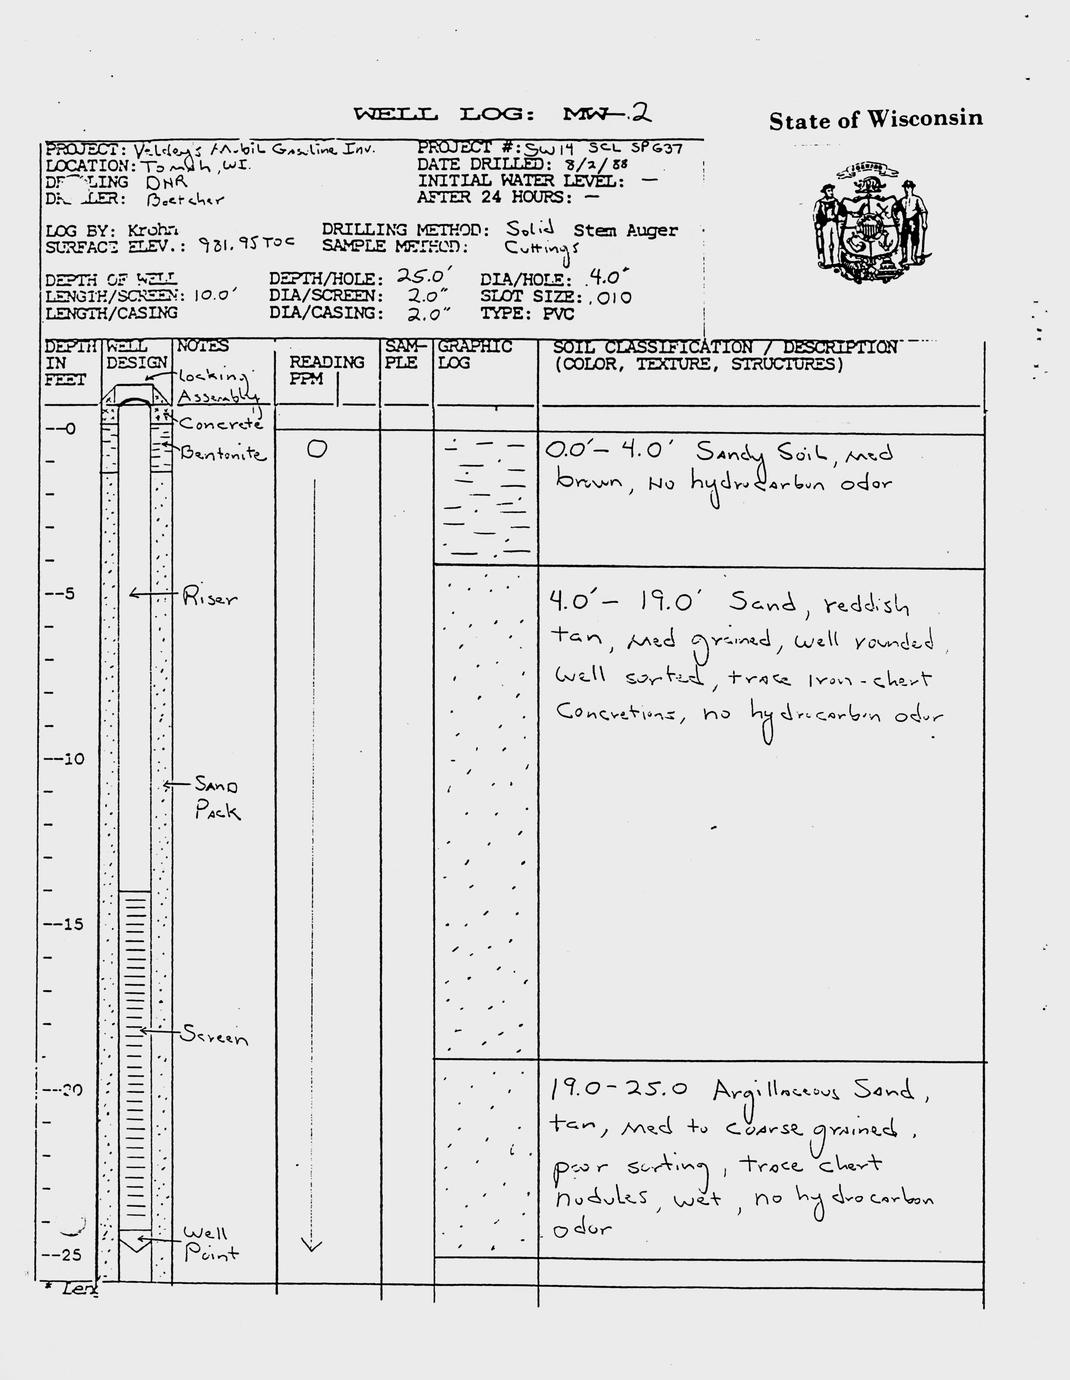 WELL LOG: MW-2
State of Wisconsin
PROJECT: Mobil Gasoline Inv. PROJECT #: SW14 SCL SPG37
LOCATION: Tomah, WI. DATE DRILLED: 8/2/88
DNR INITIAL WATER LEVEL: —
Boetcher AFTER 24 HOURS: —
LOG BY: Krohn DRILLING METHOD: Solid Stem Auger
SURFACE ELEV.: 981.95 TOC SAMPLE METHOD: Cuttings
DEPTH OF WELL DEPTH/HOLE: 25.0' DIA/HOLE: 4.0"
LENGTH/SCREEN: 10.0' DIA/SCREEN: 2.0" SLOT SIZE: .010
LENGTH/CASING DIA/CASING: 2.0" TYPE: PVC
DEPTH WELL NOTES SAM- GRAPHIC SOIL CLASSIFICATION / DESCRIPTION
IN DESIGN READING PLE LOG (COLOR, TEXTURE, STRUCTURES)
FEET PPM
Locking
Assembly
Concrete
--0
Bentonite 0 0.0'- 4.0' Sandy Soil, Med
brown, No hydrocarbon odor
--5 Riser 4.0'- 19.0' Sand, reddish
tan, Med grained, well rounded,
Well sorted, trace Iron-chert
Concretions, no hydrocarbon odor
--10
Sand
Pack
--15
Screen
--20 19.0-25.0 Argillaceous Sand,
tan, Med to coarse grained,
poor sorting, trace chert
nodules, wet, no hydrocarbon
odor
Well
Point
--25
* Len